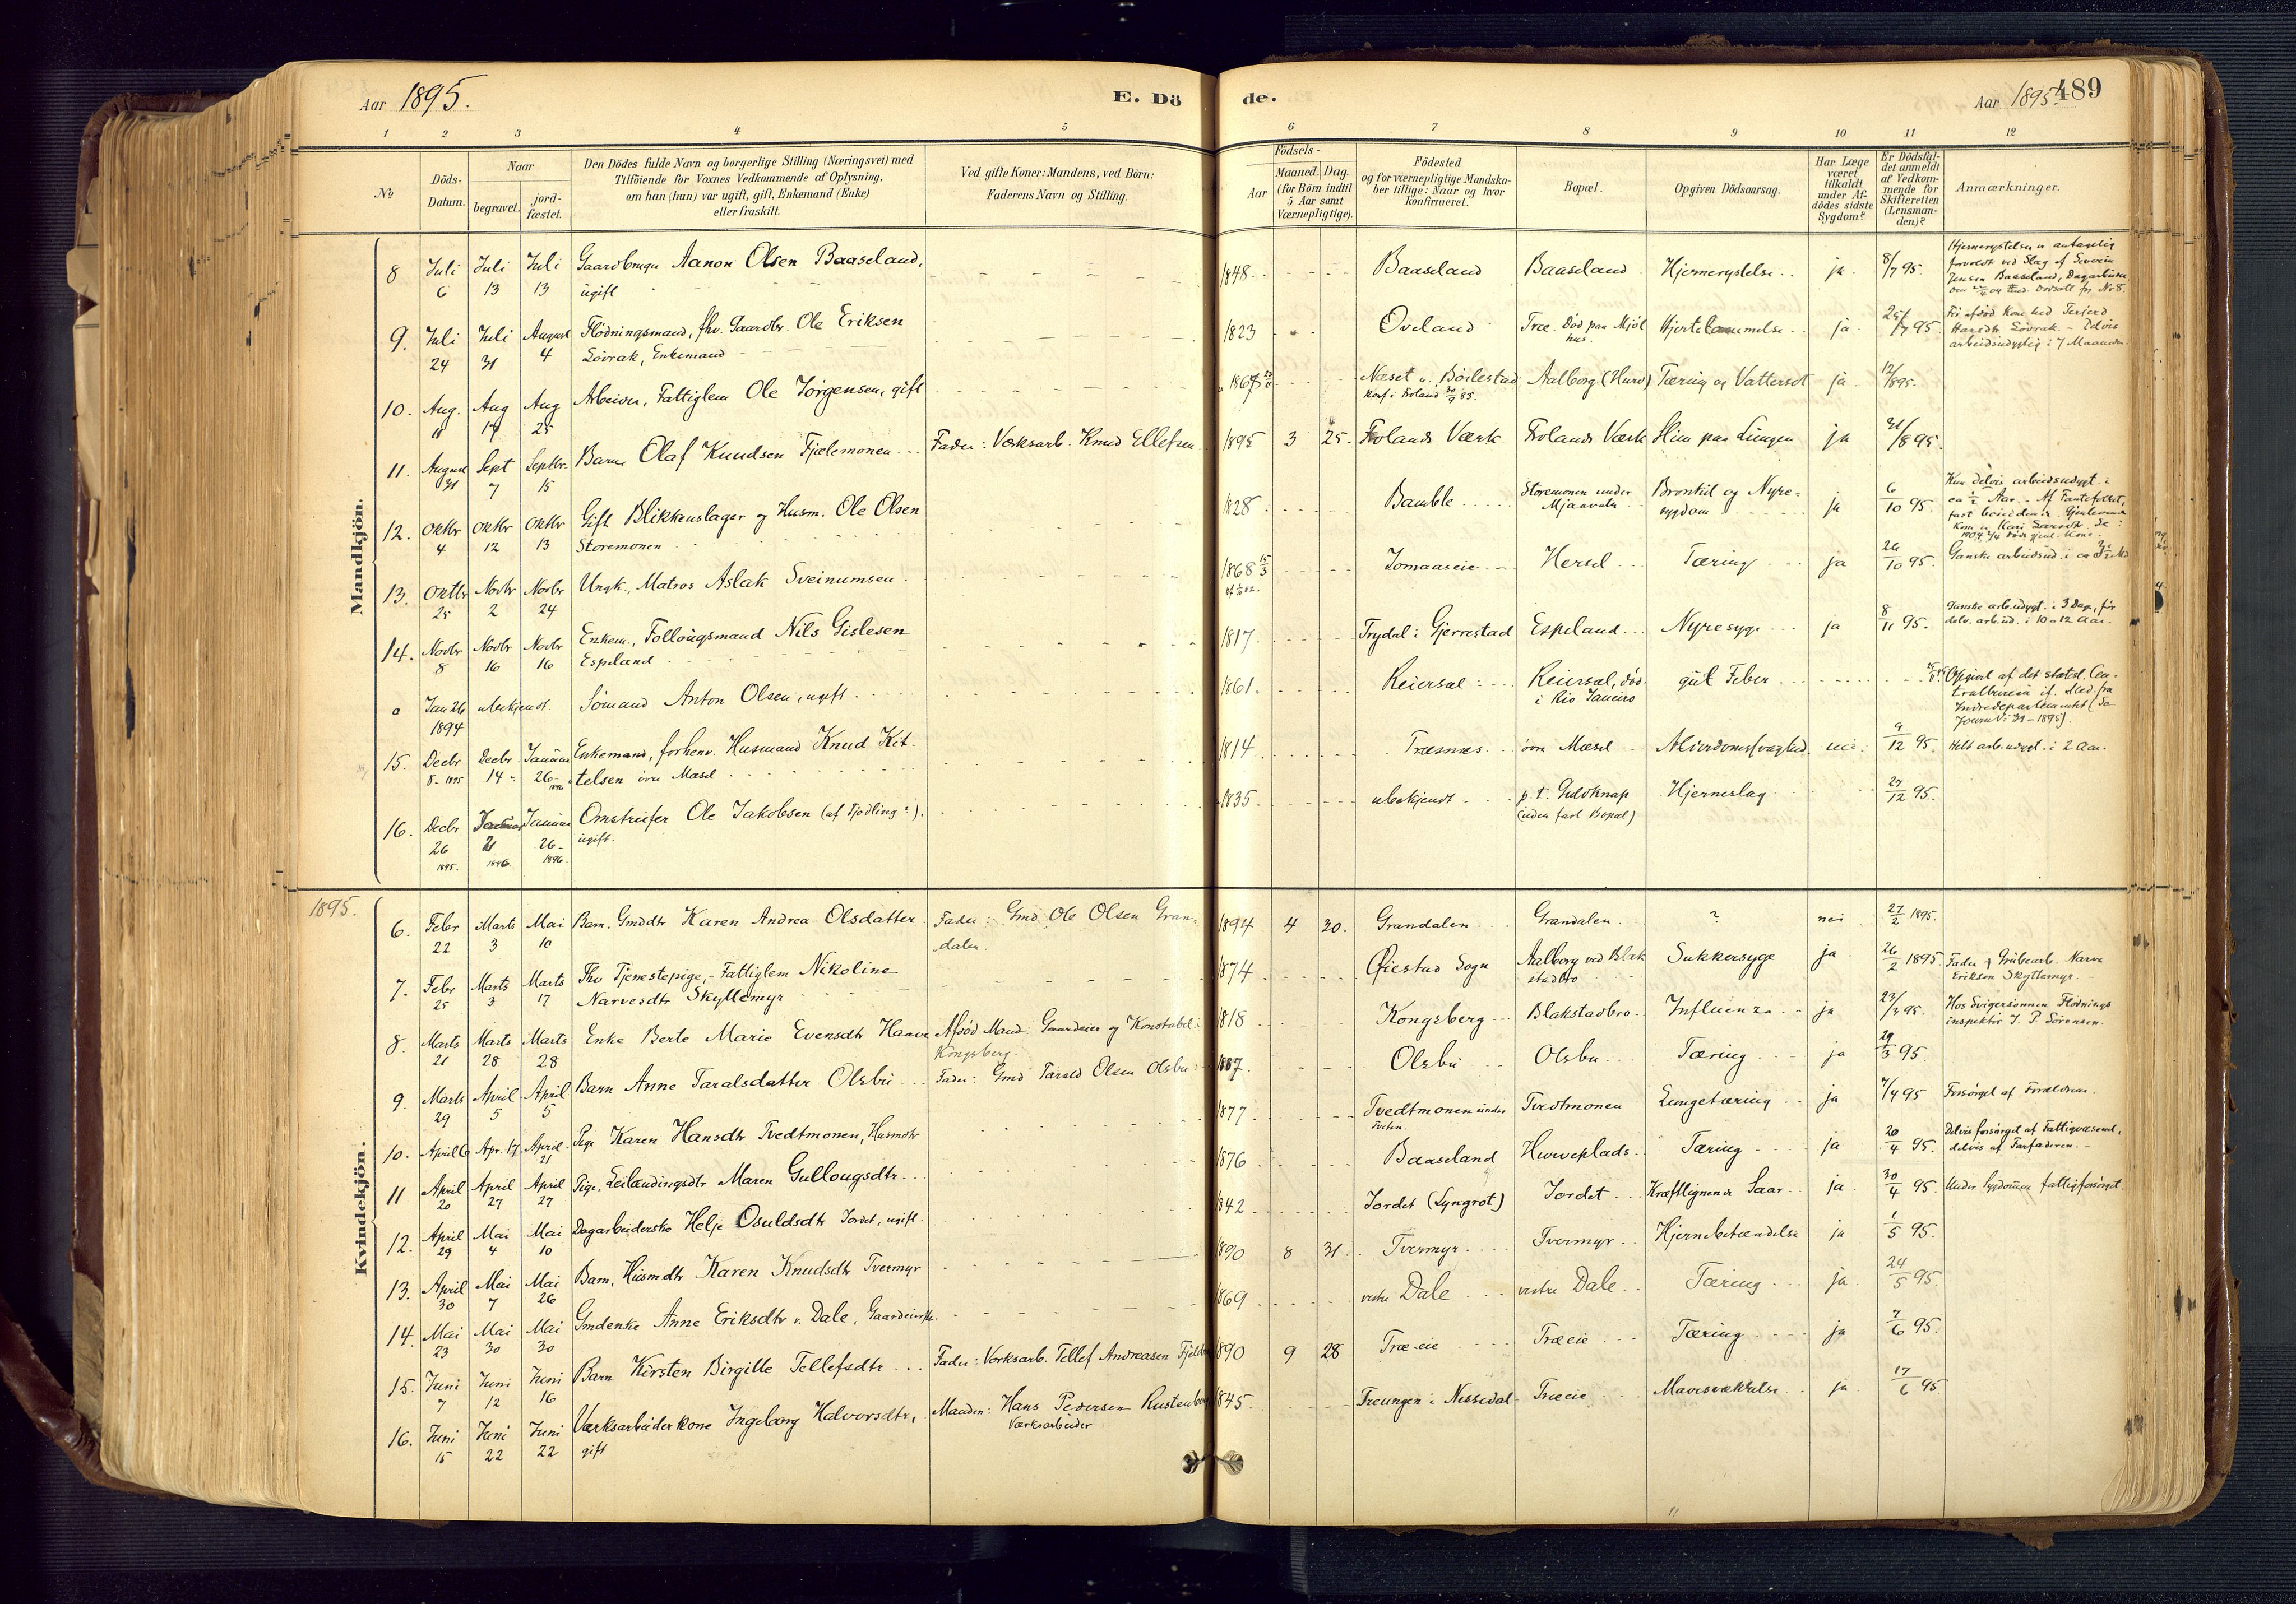 Aar 1895.
E. Dö
de.
Aar 1895.
489
1 2 3 4 5 6 7 8 9 10 11 12
No
Döds-
Datum.
Naar
begravet.
jord-
fæstet.
Den Dödes fulde Navn og borgerlige Stilling (Næringsvei) med
Tilföiende for Voxnes Vedkommende af Oplysning,
om han (hun) var ugift, gift, Enkemand (Enke)
eller fraskilt.
Ved gifte Koner: Mandens, ved Börn:
Faderens Navn og Stilling.
Födsels-
Aar
Maaned. Dag.
(for Börn indtil
5 Aar samt
Værnepligtige).
Födested
og for værnepligtige Mandska-
ber tillige: Naar og hvor
konfirmeret.
Bopæl.
Opgiven Dödsaarsag.
Har Læge
været
tilkaldt
under Af-
dödes sidste
Sygdom?
Er Dödsfal-
det anmeldt
af Vedkom-
mende for
Skifteretten
(Lensman-
den)?
Anmærkninger.
Mandkjön.
8 Juli 6 Juli 13 Juli 13 Gaardbruger Aanon Olsen Baaseland, ugift 1848. Baaseland Baaseland Hjernerystelse ja 8/7 95. Hjernerystelsen er antagelig
forvoldt ved Slag af Severin
Jensen Baaseland, Dagarbeider
9. Juli 24 Juli 31 August 4 Flödningsmand, fhv. Gaardbr. Ole Eriksen
Lövrak, Enkemand 1823 Oveland Træ. Död paa Mjöl
hus. Hjertelammelse ja 25/7 95.
arbeidsudygtig i 7 Maaneder.
10. Aug. 18 Aug Aug 25 Arbeider, Fattiglem Ole Jörgensen, gift Næset u. Böilestad
Konf i Froland 30/9 83. Aalborg (Hurv) Tæring og Vattersot ja 12/8 95.
11. August 31 Sept 7 Septbr. 15 Barn Olaf Knudsen Fjælemonen Fader: Værksarb. Knud Ellefsen 1895 3 25. Frolands Værk Frolands Værk Slim paa Lungen ja 31/8 95.
12. Oktbr 4 Oktbr 12 Oktbr 13 Gift Blikkenslager og Husm. Ole Olsen
Storemonen 1828 Bamble Storemonen under
Mjaavatn Bronkit og Nyre-
sygdom ja 6/10 95. Kun delvis arbeidsudygt. i
ca 1/2 Aar. - Af Fantefolket,
13. Oktbr 25 Novbr 2 Novbr 24 Ungk., Matros Aslak Sveinumsen 1868 15/3 Jomaaseie Hersel Tæring ja 26/10 95. Ganske arbeidsud. i ca
14. Novbr 8 Novbr 16 Novbr 16 Enkem., Follougsmand Nils Gislesen
Espeland 1817 Trydal i Gjerrestad Espeland Nyresyge ja 8/11 95. Ganske arb.udygt. i 3 Dage, för
delv. arb.ud. i 10 a 12 Aar.
o Jan 26
1894 ubekjendt. Sömand Anton Olsen, ugift 1861. Reiersæl Reiersæl, död
i Rio Janeiro gul Feber Opgivet af det statist. Cen-
tralbureau if. Med. fra
Indredepartementet (Se
Journ. No 39 - 1895).
15. Decbr 8 - 1895 Decbr 14 Januar 26 - 1896 Enkemand, forhenv. Husmand Knud Kit-
telsen övre Mæsel 1814 Træsnæs övre Mæsel Alderdomssvaghed nei 9/12 95. Helt arb.udygt. i 2 Aar.
16. Decbr 26 1895. 21 1896. Januar 26 - 1896. Omstreifer Ole Jakobsen (af Fjodling?),
ugift. 1835. ubekjendt p.t. Guldknap
(uden fast Bopæl) Hjerneslag 27/12 95.
1895.
Kvindekjön.
6. Febr 22 Marts 3 Mai 10 Barn. Gmddtr Karen Andrea Olsdatter Fader: Gmd Ole Olsen Gran-
dalen. 1894 4 30. Grandalen Grandalen ? nei 27/2 1895.
7. Febr 25 Marts 3 Marts 17 Fhv Tjenestepige, - Fattiglem Nikoline
Narvesdtr Skyttemyr 1874 Öiestad Sogn Aalborg ved Blak
stadbro Sukkersyge ja 26/2 1895. Fader Grubearb. Narve
Eriksen Skyttemyr.
8. Marts 21 Marts 28 Marts 28 Enke Berte Marie Evensdtr Haave Afdöd Mand: Gaardeier og Konstabel
Kongsberg. 1818 Kongsberg Blakstadbro Influenza ja 23/3 95. Hos Svigersönnen Flödnings
inspektör J. P. Sörensen.
9. Marts 29 April 5 April 5 Barn Anne Taralsdatter Olsbu Fader: Gmd Tarald Olsen Olsbu 1887. Olsbu Olsbu Tæring ja 29/3 95.
10. April 6 Apr. 17 April 21 Pige Karen Hansdtr Tvedtmonen, Husmdtr 1877 Tvedtmonen under
Tveten. Tvedtmonen Lungetæring ja 7/4 95 Forsörget af Forældrene.
11 April 20 April 27 April 27 Pige, Leilændingsdtr Maren Gullougsdtr. 1876 Baaseland Hurveplads Tæring ja 20/4 95. Delvis forsörget af Fattigvæsenet,
delvis af Farfaderen. -
12. April 29 Mai 4 Mai 10 Dagarbeiderske Helje Osuldsdtr Jordet, ugift 1842 Jordet (Lyngrot) Jordet Kræftlignende Saar ja 30/4 95. Under Sygdommen fattigforsörget.
13. April 30 Mai 7 Mai 26 Barn, Husmdtr Karen Knudsdtr Tvermyr 1890 8 31. Tvermyr Tvermyr Hjernebetændelse ja 1/5 95.
14. Mai 23 Mai 30 Mai 30 Gmdenke Anne Eriksdtr v. Dale, Gaardeierske. 1869 vestre Dale vestre Dale Tæring ja 24/5 95.
15. Juni 7 Juni 12 Juni 16 Barn Kirsten Birgitte Tellefsdtr Fader: Værksarb. Tellef Andreasen 1890 9 28 Træeie Træeie Tæring ja 7/6 95.
16. Juni 15 Juni 22 Juni 22 Værksarbeiderkone Ingeborg Halvorsdtr,
gift Manden: Hans Pedersen Rustenborg
Værksarbeider 1845. Treungen i Nissedal Træeie Mavesvækkelse ja 17/6 95.